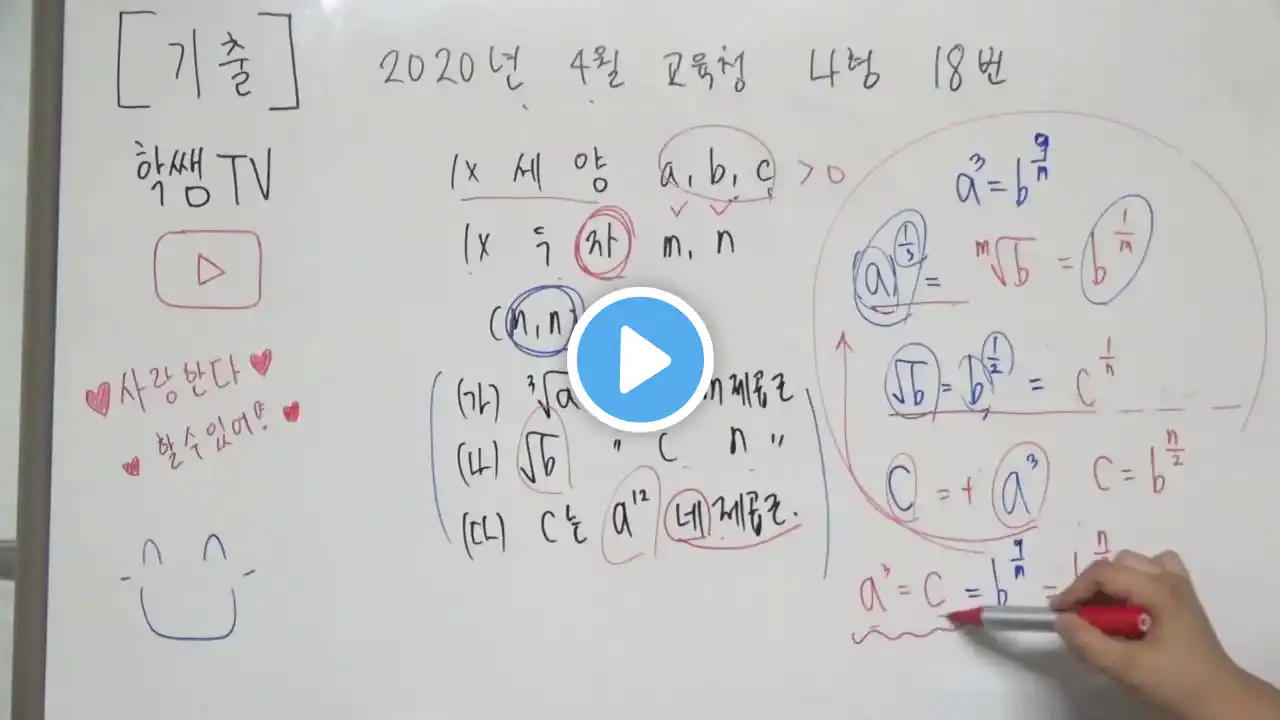 [기출] 2020년 4월 교육청 나형 18번
학쌤TV
♥사랑한다♥
♥할수있어!♥
1x 세 양 a, b, c > 0
1x 두 자 m, n
(m, n)
(가) ³√a m제곱근
(나) √b 〃 c n 〃
(다) c는 a¹² 네제곱근.
a³ = b^(9/m)
a^(1/3) = ᵐ√b = b^(1/m)
√b = b^(1/2) = c^(1/n)
c = + a³ c = b^(n/2)
a³ = c = b^(9/m) =